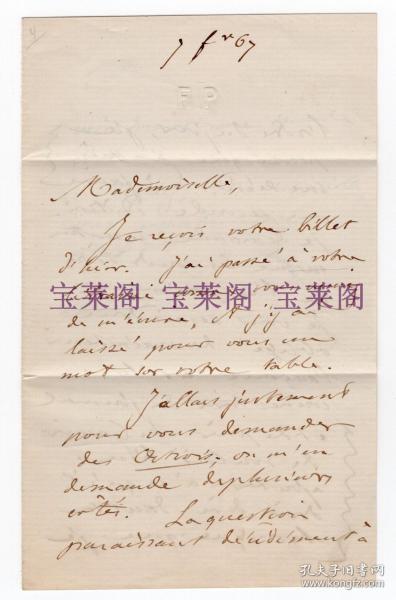 7 fr 67
FP
Mademoiselle,
Je reçois votre billet
d'hier. J'ai passé à votre
宝莱阁 宝莱阁 宝莱阁
de m'écrire, & j'y ai
laissé pour vous un
mot sur votre table.
J'allais justement
pour vous demander
des Octrois, on m'en
demande de plusieurs
côtés. La question
paraissant décidément à
孔夫子旧书网
www.kongfz.com